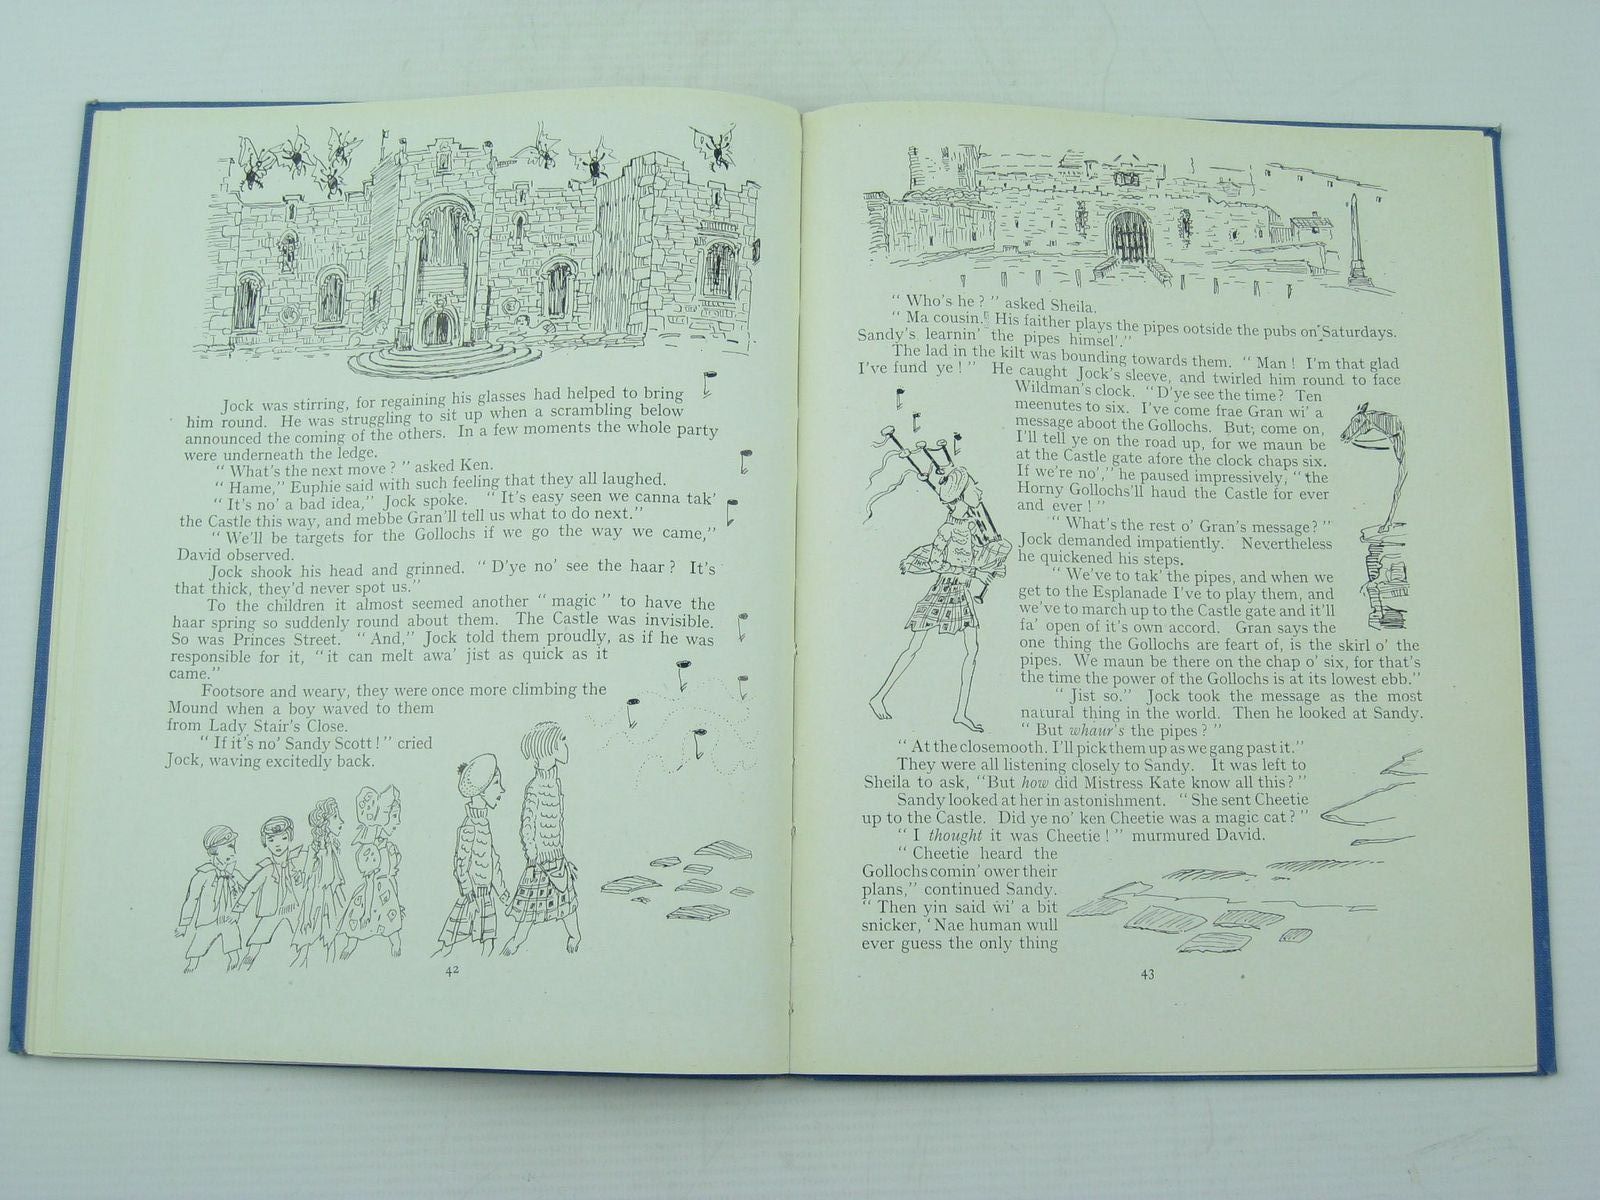 Jock was stirring, for regaining his glasses had helped to bring
him round. He was struggling to sit up when a scrambling below
announced the coming of the others. In a few moments the whole party
were underneath the ledge.
" What's the next move ? " asked Ken.
" Hame," Euphie said with such feeling that they all laughed.
" It's no' a bad idea," Jock spoke. " It's easy seen we canna tak'
the Castle this way, and mebbe Gran'll tell us what to do next."
" We'll be targets for the Gollochs if we go the way we came,"
David observed.
Jock shook his head and grinned. " D'ye no' see the haar ? It's
that thick, they'd never spot us."
To the children it almost seemed another " magic " to have the
haar spring so suddenly round about them. The Castle was invisible.
So was Princes Street. " And," Jock told them proudly, as if he was
responsible for it, " it can melt awa' jist as quick as it
came."
Footsore and weary, they were once more climbing the
Mound when a boy waved to them
from Lady Stair's Close.
" If it's no' Sandy Scott ! " cried
Jock, waving excitedly back.
42
" Who's he ? " asked Sheila.
" Ma cousin. His faither plays the pipes ootside the pubs on Saturdays.
Sandy's learnin' the pipes himsel'."
The lad in the kilt was bounding towards them. " Man ! I'm that glad
I've fund ye ! " He caught Jock's sleeve, and twirled him round to face
Wildman's clock. " D'ye see the time ? Ten
meenutes to six. I've come frae Gran wi' a
message aboot the Gollochs. But, come on,
I'll tell ye on the road up, for we maun be
at the Castle gate afore the clock chaps six.
If we're no'," he paused impressively, " the
Horny Gollochs'll haud the Castle for ever
and ever ! "
" What's the rest o' Gran's message ? "
Jock demanded impatiently. Nevertheless
he quickened his steps.
" We've to tak' the pipes, and when we
get to the Esplanade I've to play them, and
we've to march up to the Castle gate and it'll
fa' open of it's own accord. Gran says the
one thing the Gollochs are feart of, is the skirl o' the
pipes. We maun be there on the chap o' six, for that's
the time the power of the Gollochs is at its lowest ebb."
" Jist so." Jock took the message as the most
natural thing in the world. Then he looked at Sandy.
" But whaur's the pipes ? "
" At the closemooth. I'll pick them up as we gang past it."
They were all listening closely to Sandy. It was left to
Sheila to ask, " But how did Mistress Kate know all this ? "
Sandy looked at her in astonishment. " She sent Cheetie
up to the Castle. Did ye no' ken Cheetie was a magic cat ? "
" I thought it was Cheetie ! " murmured David.
" Cheetie heard the
Gollochs comin' ower their
plans," continued Sandy.
" Then yin said wi' a bit
snicker, ' Nae human wull
ever guess the only thing
43